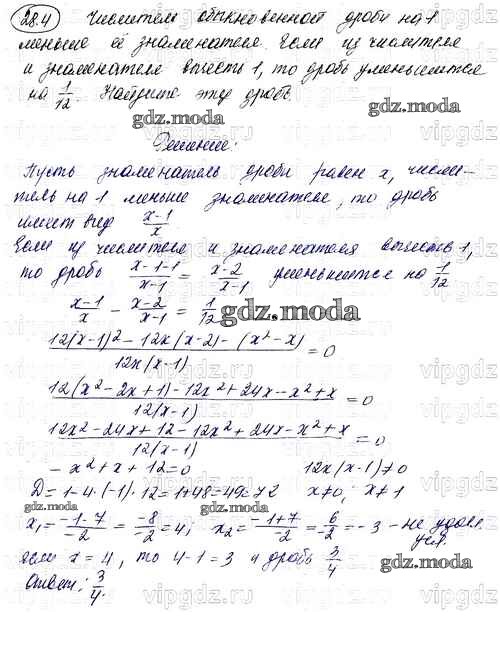 28.4 Числитель обыкновенной дроби на 1
меньше её знаменателя. Если из числителя
и знаменателя вычесть 1, то дробь уменьшится
на 1/12. Найдите эту дробь.
gdz.moda
Решение:
Пусть знаменатель дроби равен x, числи-
тель на 1 меньше знаменателя, то дробь
имеет вид (x-1)/x
Если из числителя и знаменателя вычесть 1,
то дробь (x-1-1)/(x-1) = (x-2)/(x-1) уменьшится на 1/12
(x-1)/x - (x-2)/(x-1) = 1/12
gdz.moda
(12(x-1)² - 12x(x-2) - (x²-x))/(12x(x-1)) = 0
(12(x²-2x+1) - 12x²+24x-x²+x)/(12(x-1)) = 0
(12x²-24x+12-12x²+24x-x²+x)/(12(x-1)) = 0
-x²+x+12=0 12x(x-1)≠0
D=1-4·(-1)·12=1+48=49=7² x≠0; x≠1
x₁=(-1-7)/-2 = -8/-2 = 4; x₂=(-1+7)/-2 = 6/-2 = -3 - не удовл.
усл.
если x=4, то 4-1=3 и дробь 3/4
Ответ: 3/4.
gdz.moda